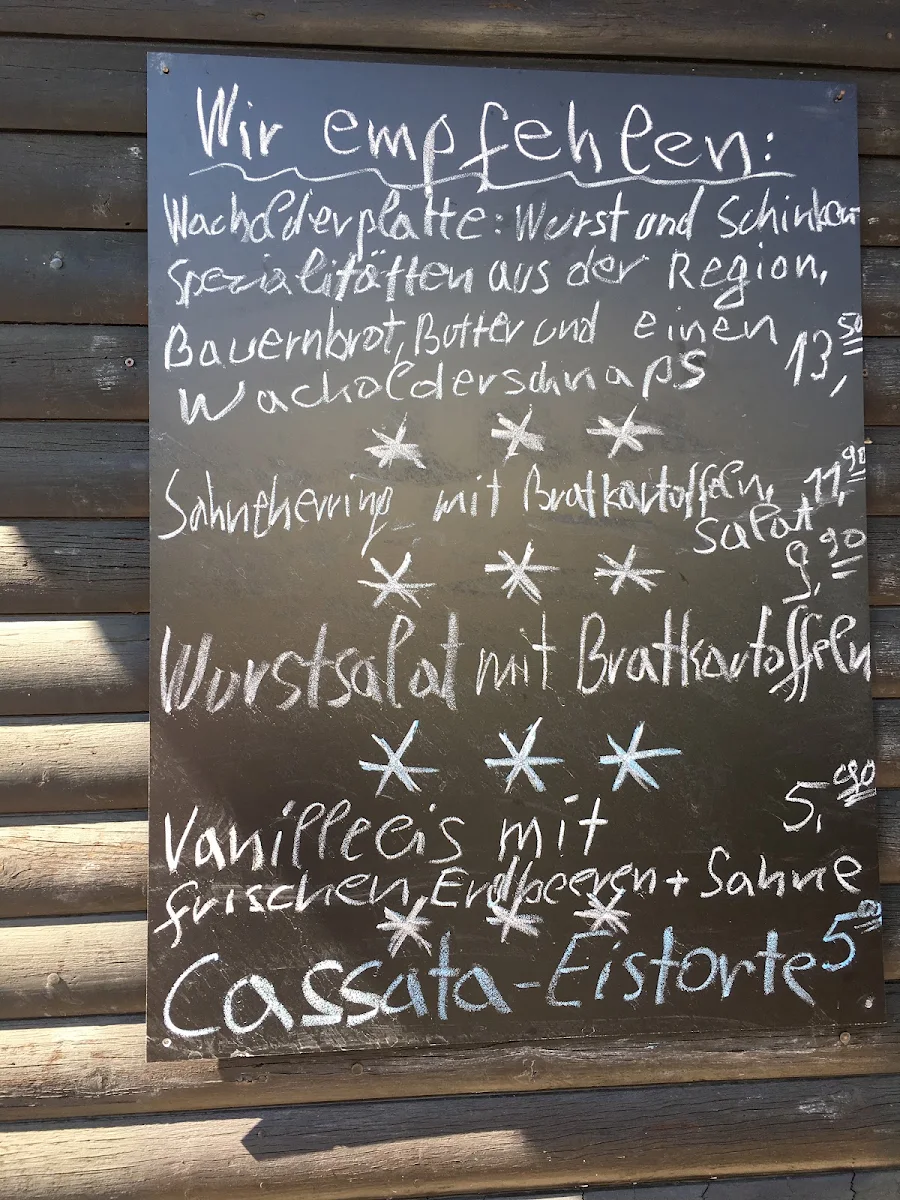 Wir empfehlen:
Wacholderplatte: Wurst und Schinken
Spezialitätten aus der Region,
Bauernbrot, Butter und einen 13,50
Wacholderschnaps
* * *
Sahneherring mit Bratkartoffeln, 11,90
Salat
* * * 9,90
Wurstsalat mit Bratkartoffeln
* * *
Vanilleeis mit 5,90
frischen Erdbeeren + Sahne
* * *
Cassata-Eistorte 5,00